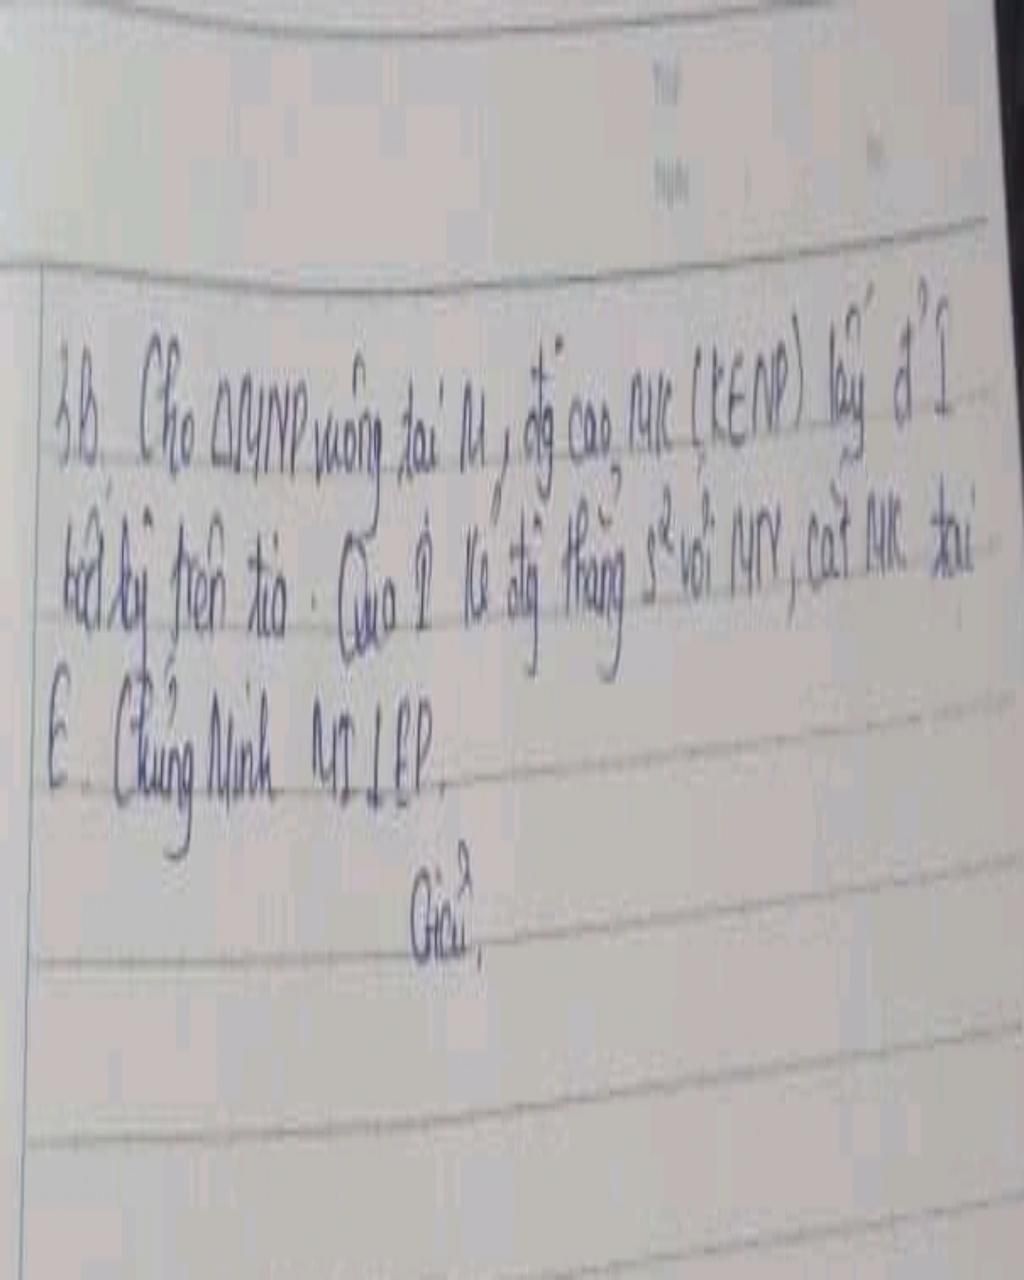 3B. Cho ΔMNP vuông tại M, đg cao MK (K∈NP) lấy đ' I
bất kỳ trên tia. Qua I kẻ đg thẳng s² với MN, cắt MK tại
E. Chứng Minh MI⊥EP.
Giải.